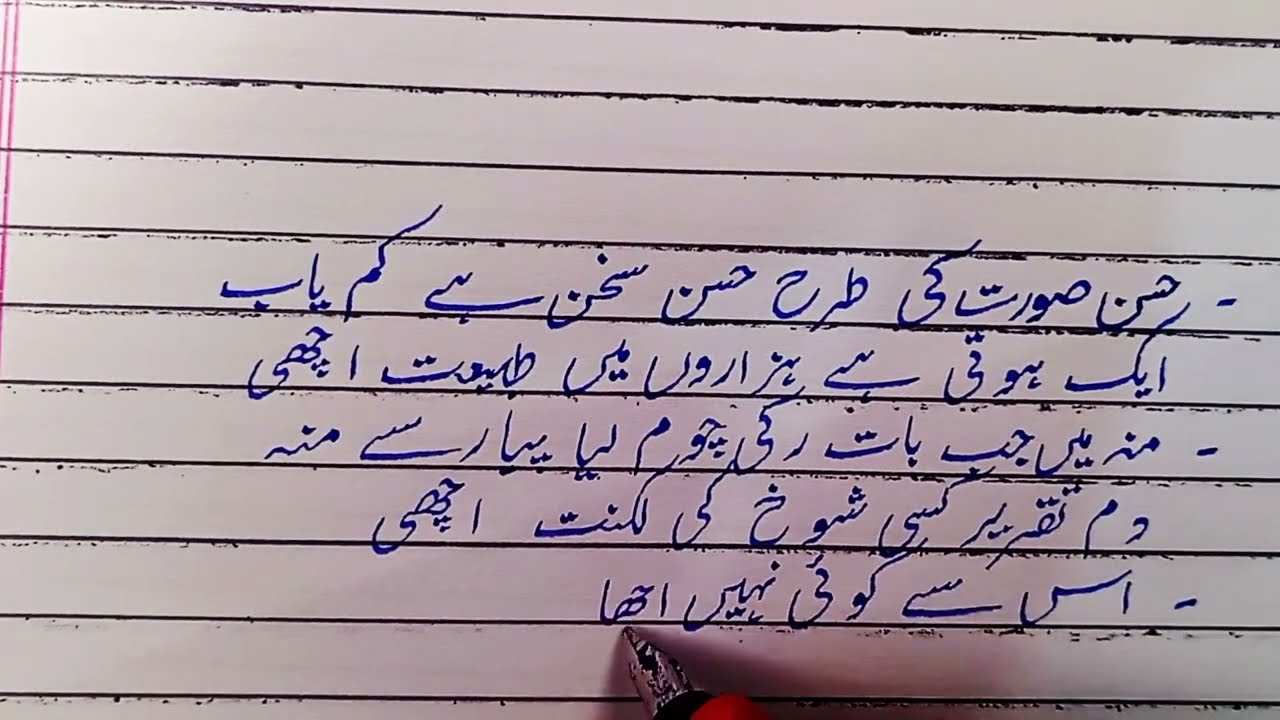 - حسن صورت کی طرح حسن سخن ہے کم یاب
ایک ہوتی ہے ہزاروں میں طبیعت اچھی
- منہ میں جب بات رکی چوم لیا پیار سے منہ
دم تقریر کسی شوخ کی لکنت اچھی
- اس سے کوئی نہیں اچھا